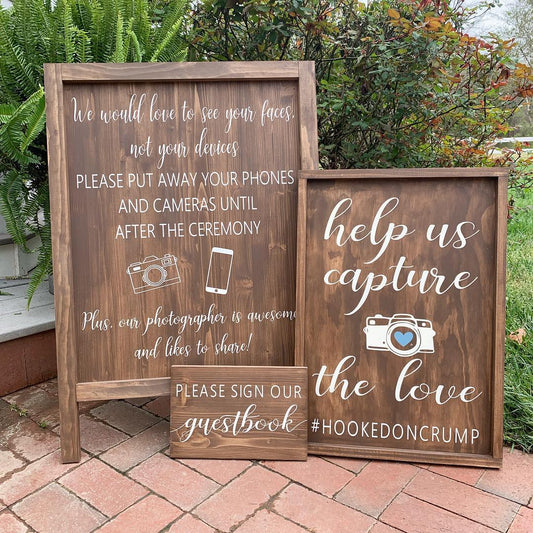 We would love to see your faces,
not your devices
PLEASE PUT AWAY YOUR PHONES
AND CAMERAS UNTIL
AFTER THE CEREMONY
Plus, our photographer is awesome
and likes to share!
help us
capture
the love
#HOOKEDONCRUMP
PLEASE SIGN OUR
guestbook